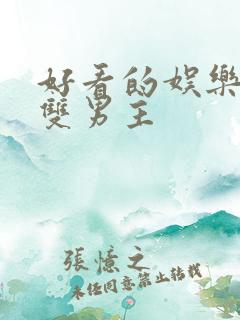 好看的娱樂
雙男主
張憶之
未经同意禁止转载